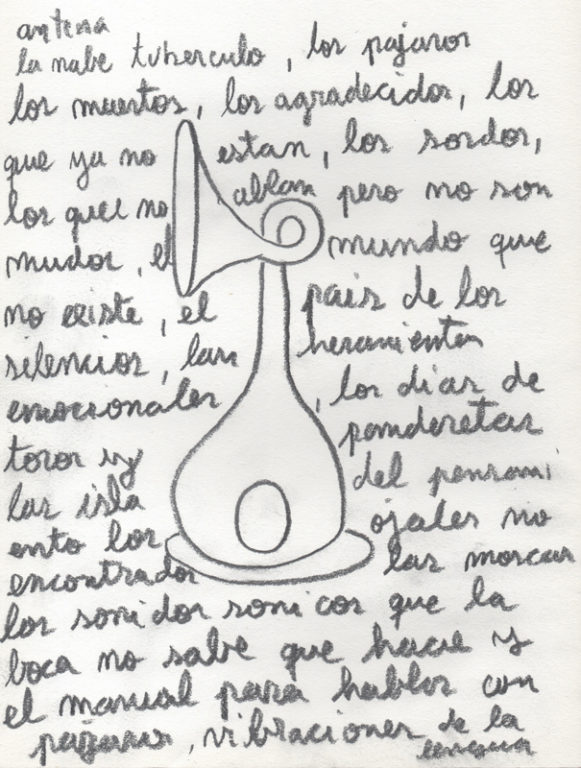 antena
la nabe tuberculo, los pajaros
los muertos, los agradecidos, los
que ya no estan, los sordos,
los que no ablan pero no son
mudos, el mundo que
no existe, el pais de los
silencios, las heramientas
emocionales, los dias de
toros y panderetas
las isla del pensami
ento los ojales no
encontrados las moscas
los sonidos sonicos que la
boca no sabe que hacie y
el manual para hablar con
pajaros, vibraciones de la
lengua